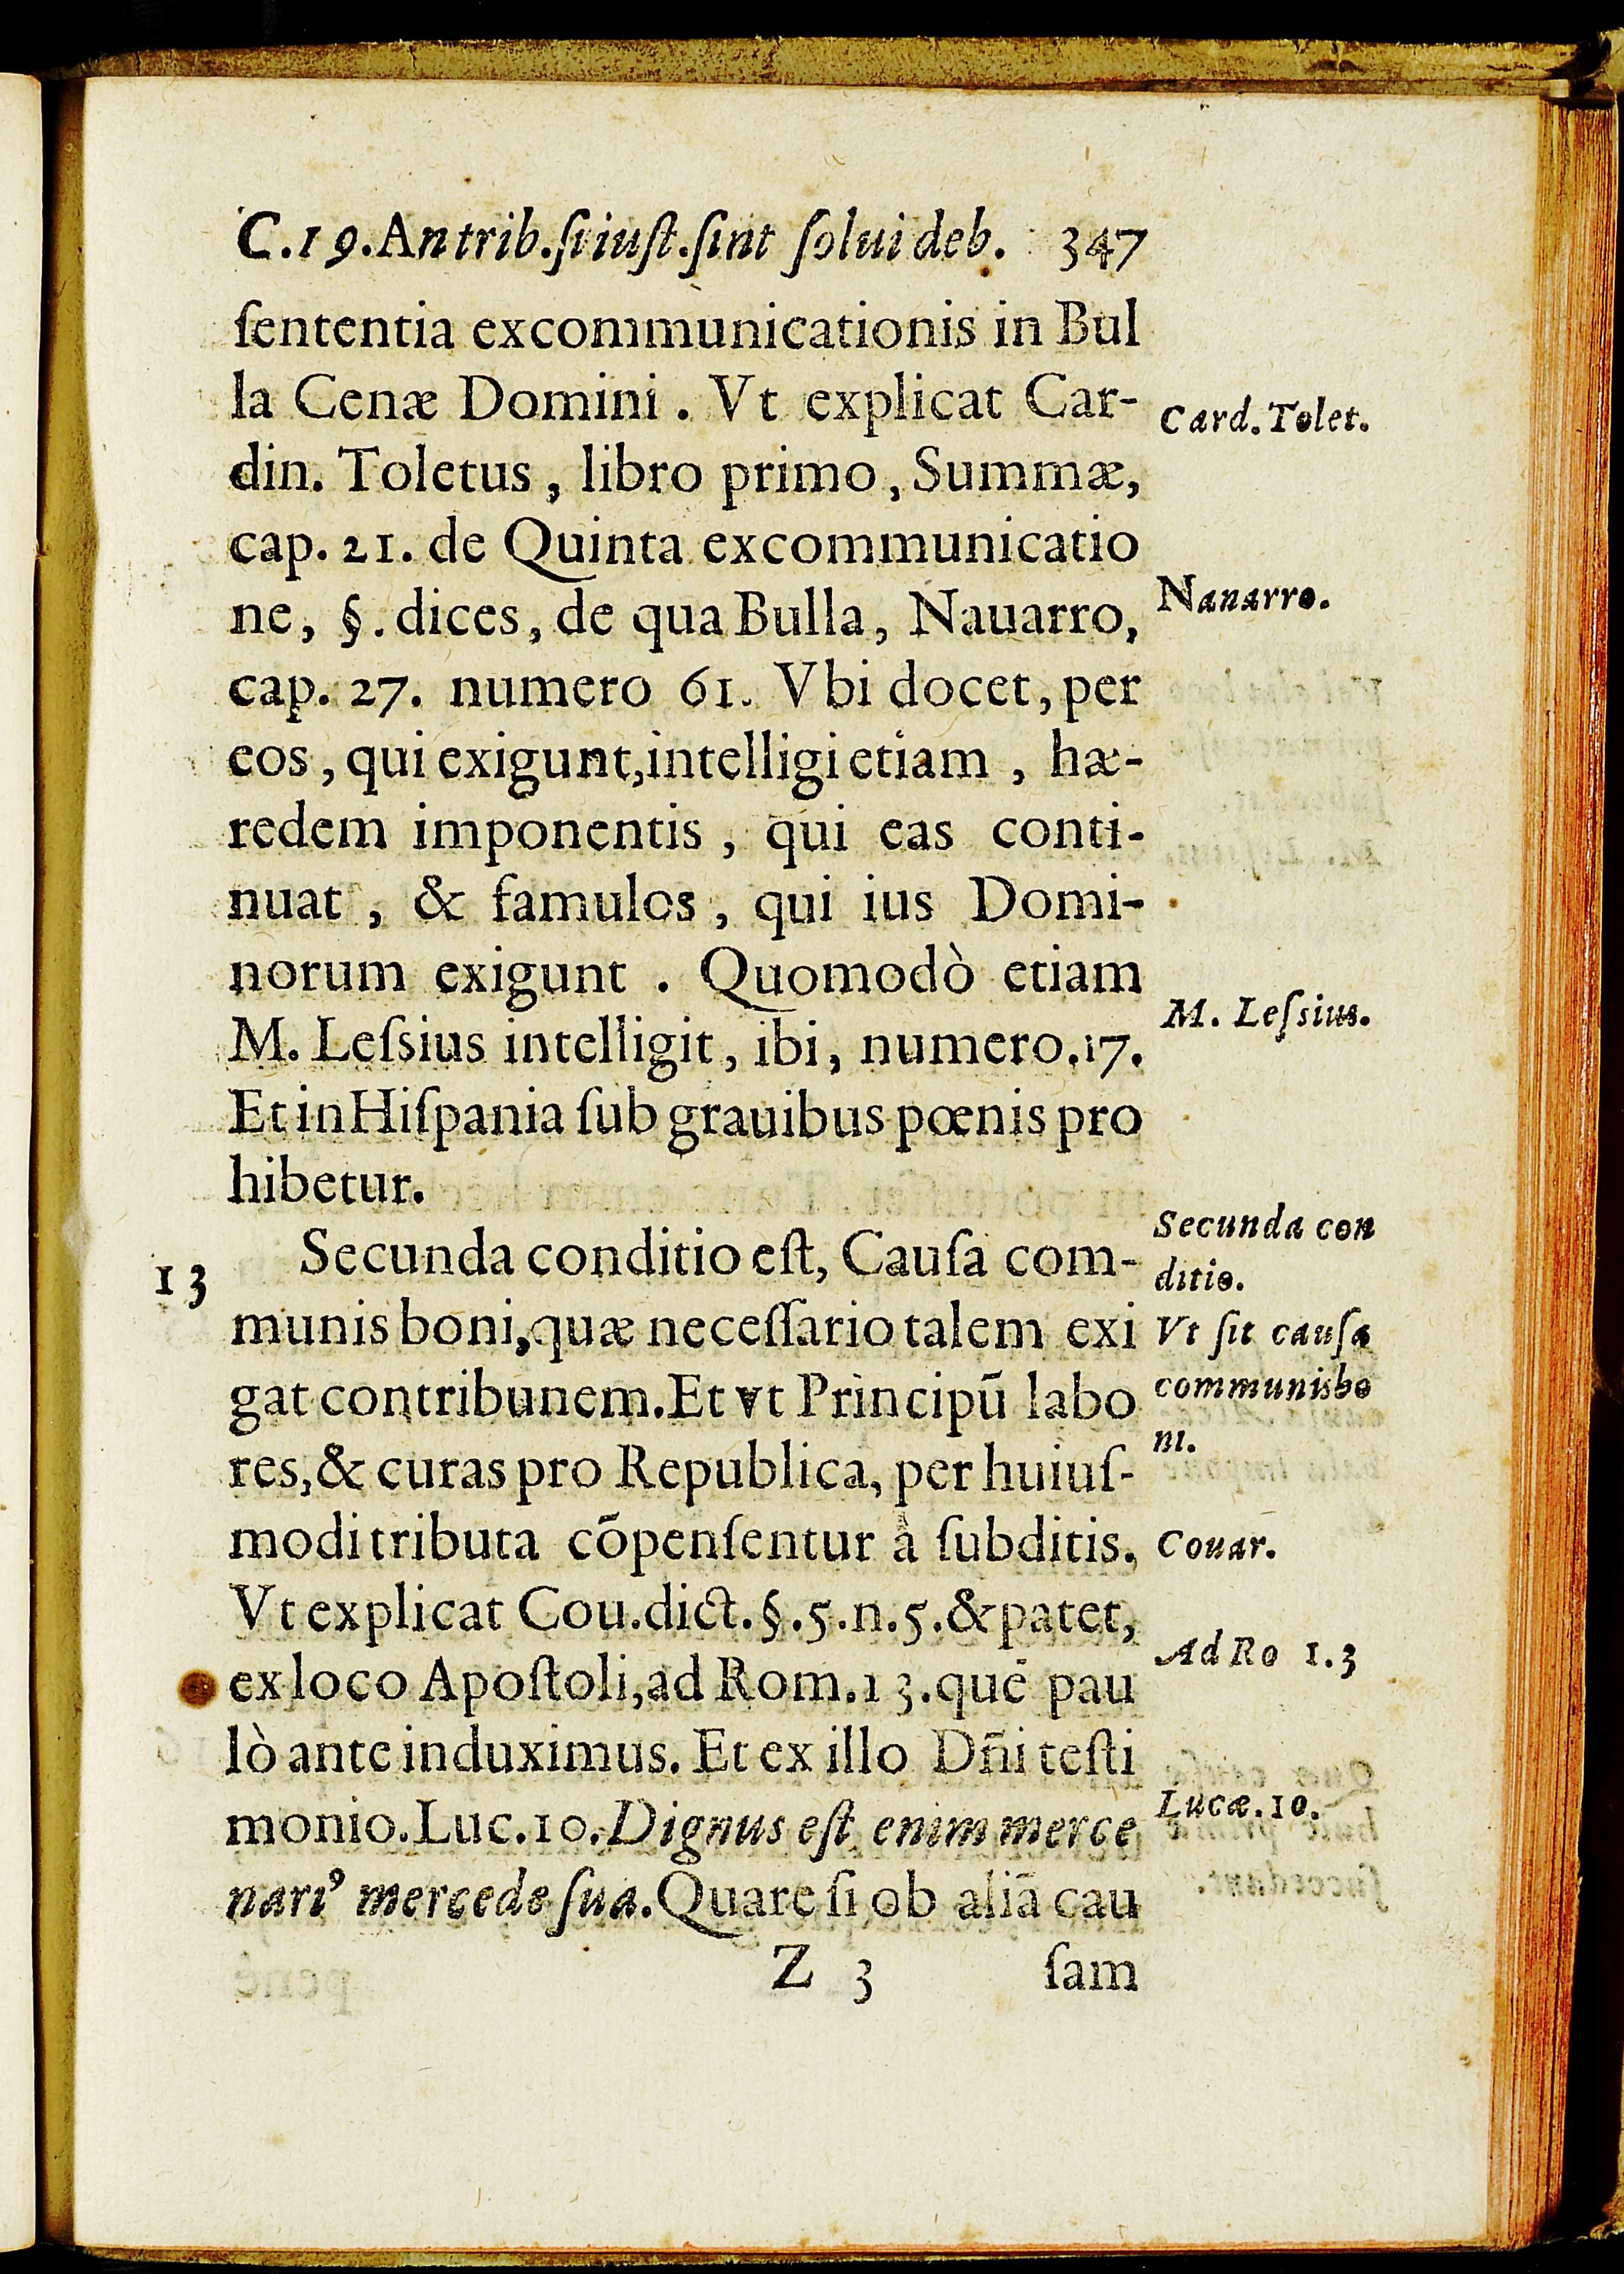 C.19.An trib.ſi iuſt.ſint ſolui deb. 347
ſententia excommunicationis in Bul
la Cenæ Domini. Vt explicat Car-
din. Toletus, libro primo, Summæ,
cap. 21. de Quinta excommunicatio
ne, §. dices, de qua Bulla, Nauarro,
cap. 27. numero 61. Vbi docet, per
eos, qui exigunt, intelligi etiam, hæ-
redem imponentis, qui eas conti-
nuat, & famulos, qui ius Domi-
norum exigunt. Quomodò etiam
M. Leſsius intelligit, ibi, numero.17.
Et in Hiſpania ſub grauibus pœnis pro
hibetur.
13 Secunda conditio eſt, Cauſa com-
munis boni, quæ neceſſario talem exi
gat contribunem. Et vt Principū labo
res, & curas pro Republica, per huiuſ-
modi tributa cōpenſentur à ſubditis.
Vt explicat Cou.dict.§.5.n.5.& patet,
ex loco Apoſtoli, ad Rom.13.quē pau
lò ante induximus. Et ex illo Dñi teſti
monio. Luc.10. Dignus eſt enim merce
nariꝰ mercede ſua. Quare ſi ob aliā cau
Z 3 ſam
Card. Tolet.
Nanarro.
M. Leſsius.
Secunda con
ditio.
Vt ſit cauſa
communis bo
ni.
Couar.
Ad Ro 1.3
Lucæ.10.